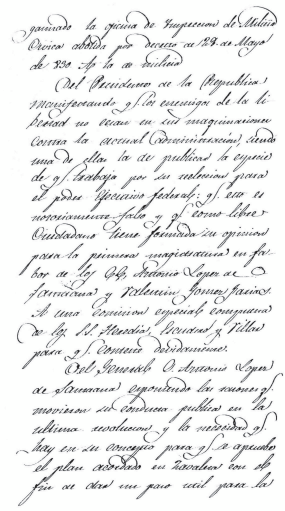 ganizado la oficina de Inspeccion de Milicia
Civica abolida por decreto de 28 de Mayo
de 830. A la de milicia
Del Presidente de la Republica
manifestando q.e los enemigos de la li
bertad no cesan en sus maquinaciones
contra la actual administracion, siendo
una de ellas la de publicar la especie
de q.e trabaja por su reeleccion para
el poder Ejecutivo federal: q.e esto es
notoriamente falso y q.e como libre
Ciudadano tiene formada su opinion
para la primera magistratura en fa
bor de los CC. Antonio Lopez de
Santana y Valentin Gomez Farias
A una comision especial compuesta
de los SS. Heredia, Escudero y Villa
para q.e conteste debidamente.
Del General D. Antonio Lopez
de Santana exponiendo las razones q.e
movieron su conducta publica en la
ultima revolucion y la necesidad q.e
hay en su concepto para q.e se apruebe
el plan acordado en Zavaleta con el
fin de dar un paso util para la